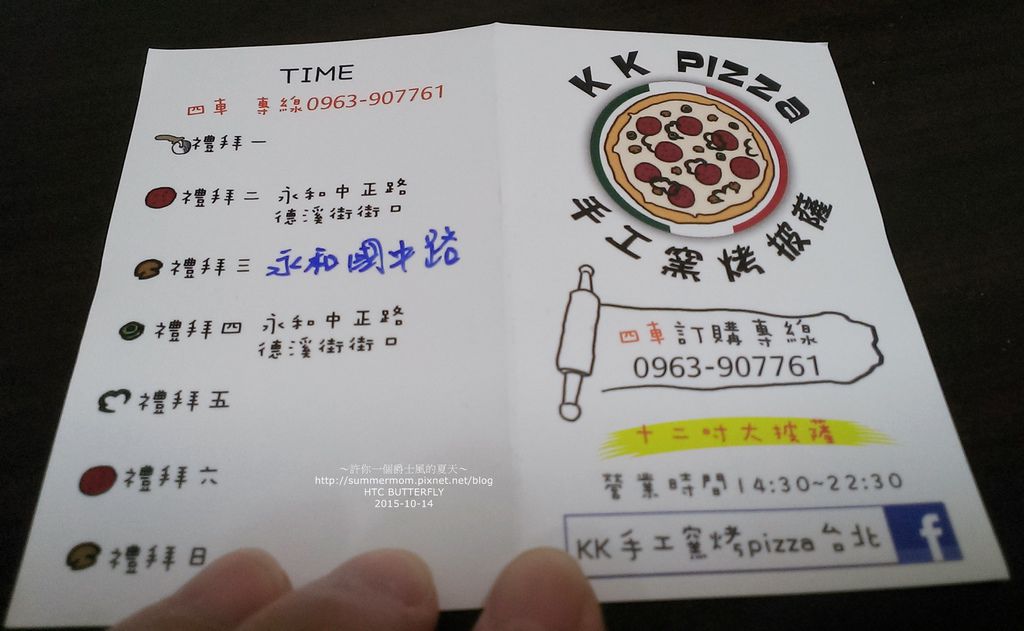 TIME
四車 專線0963-907761
禮拜一
禮拜二 永和中正路
德溪街街口
禮拜三 永和國中路
禮拜四 永和中正路
德溪街街口
禮拜五
禮拜六
禮拜日
～許你一個爵士風的夏天～
http://summermom.pixnet.net/blog
HTC BUTTERFLY
2015-10-14
KK PIZZa
手工窯烤披薩
四車訂購專線
0963-907761
十二吋大披薩
營業時間14:30~22:30
KK手工窯烤pizza台北 f